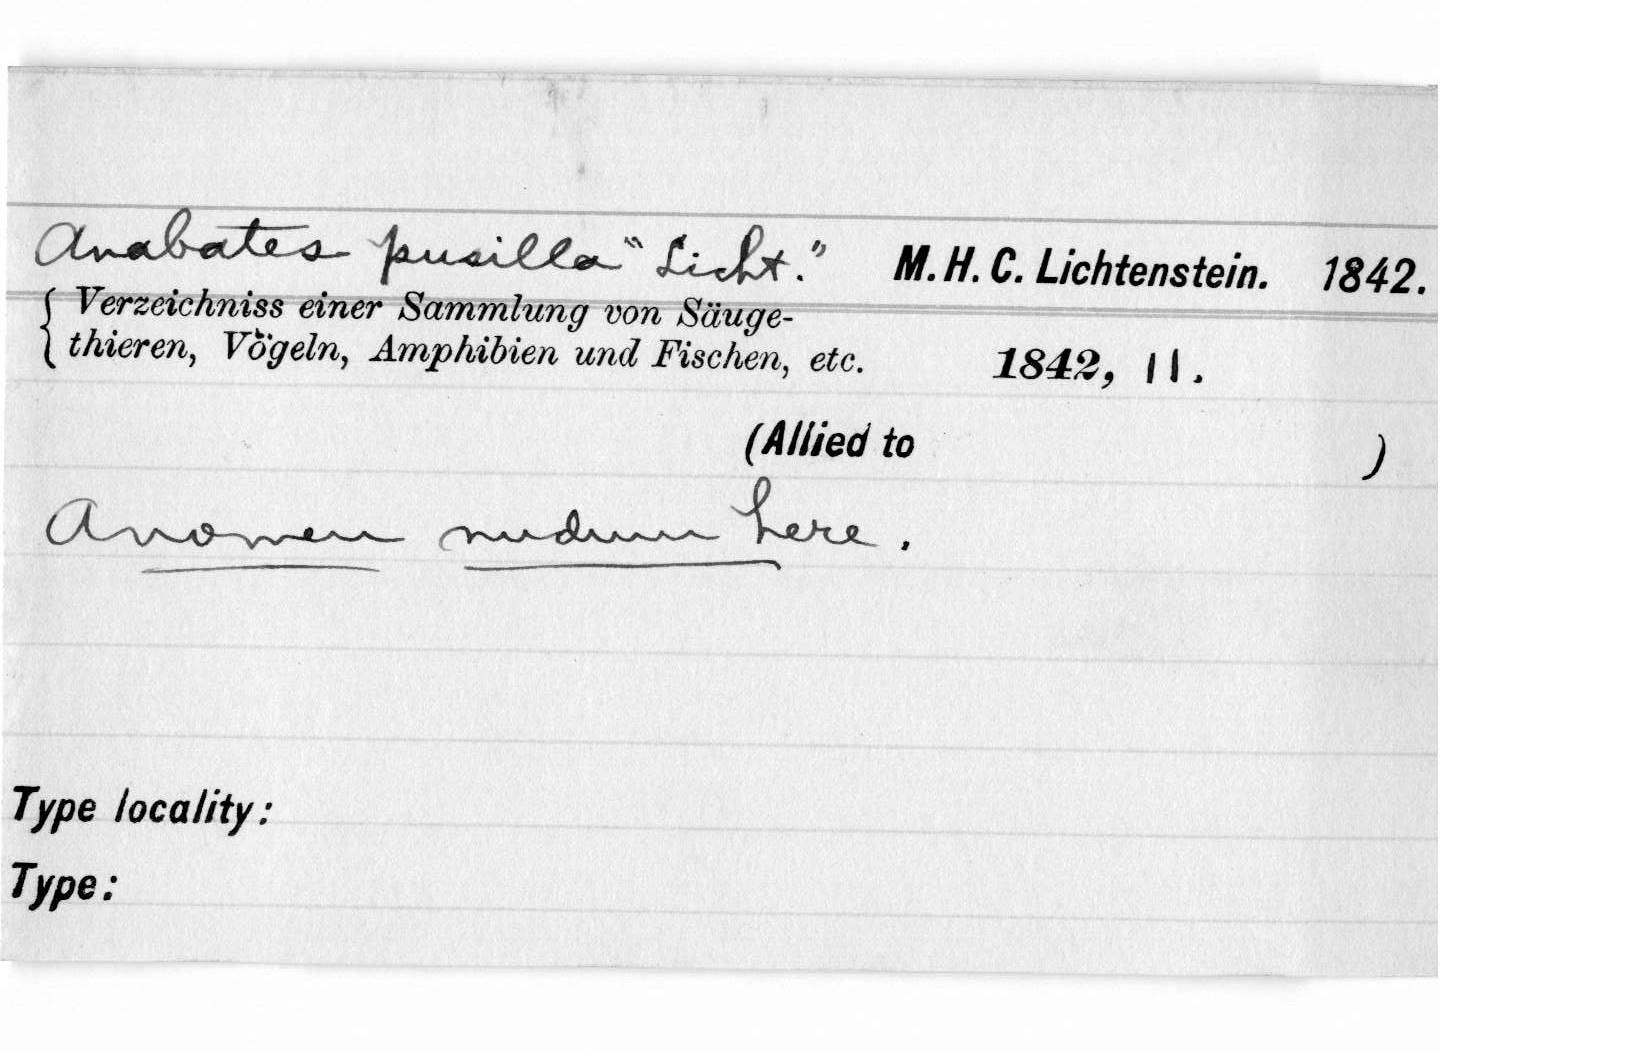 Anabates pusilla "Licht." M. H. C. Lichtenstein. 1842.
Verzeichniss einer Sammlung von Säuge-
thieren, Vögeln, Amphibien und Fischen, etc. 1842, 11.
(Allied to )
A nomen nudum here.
Type locality:
Type: